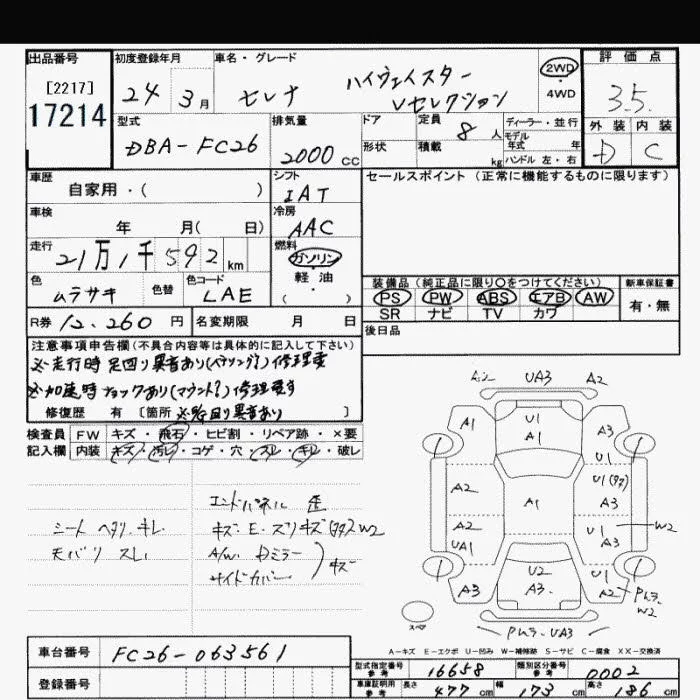 出品番号 初度登録年月 車名・グレード 評価点
[2217]
17214
24年 3月
セレナ
ハイウェイスター
Vセレクション
2WD・4WD
3.5
外装 内装
D C
型式 DBA-FC26
排気量 2000 cc
ドア 形状
定員 8人
積載 kg
ディーラー・並行
モデル年式 年
ハンドル 左・右
車歴 自家用・( )
シフト IAT
セールスポイント (正常に機能するものに限ります)
車検 年 月( 日)
冷房 AAC
走行 21万1千592 km
燃料 ガソリン・軽油・( )
色 ムラサキ 色替 色コード LAE
装備品 (純正品に限り○をつけてください) 新車保証書
PS PW ABS エアB AW 有・無
SR ナビ TV カワ
R券 12,260円 名変期限 月 日
後日品
注意事項申告欄(不具合内容等は具体的に記入して下さい)
※走行時 足回り異音あり(ベアリング?)修理要
※加速時ショックあり(マウント?)修理要す
修復歴 有 [箇所 ※足回り異音あり ]
検査員記入欄
FW キズ・飛石・ヒビ割・リペア跡・×要
内装 キズ・汚レ・コゲ・穴・スレ・キレ・破レ
シート ヘタリ.キレ
モバリ スレ
エンドパネル 歪
キズ・E・スリキズ(タタ)W2
A/W. Dミラー
サイドカバー
キズ
UA3 A2
A1 U1 A1 A3
U1
U1(タタ)
A2 A1 A3
A2 U1 W2
UA1 A3
A3 U2 A3. U1 A2
W2
UA3
スペア
A-キズ E-エクボ U-凹み W-補修跡 S-サビ C-腐食 XX-交換済
車台番号 FC26-063561
登録番号
型式指定番号 参考 16658 類別区分番号 参考 0002
車庫証明用 参考 長さ 477 cm 幅 173 cm 高さ 186 cm